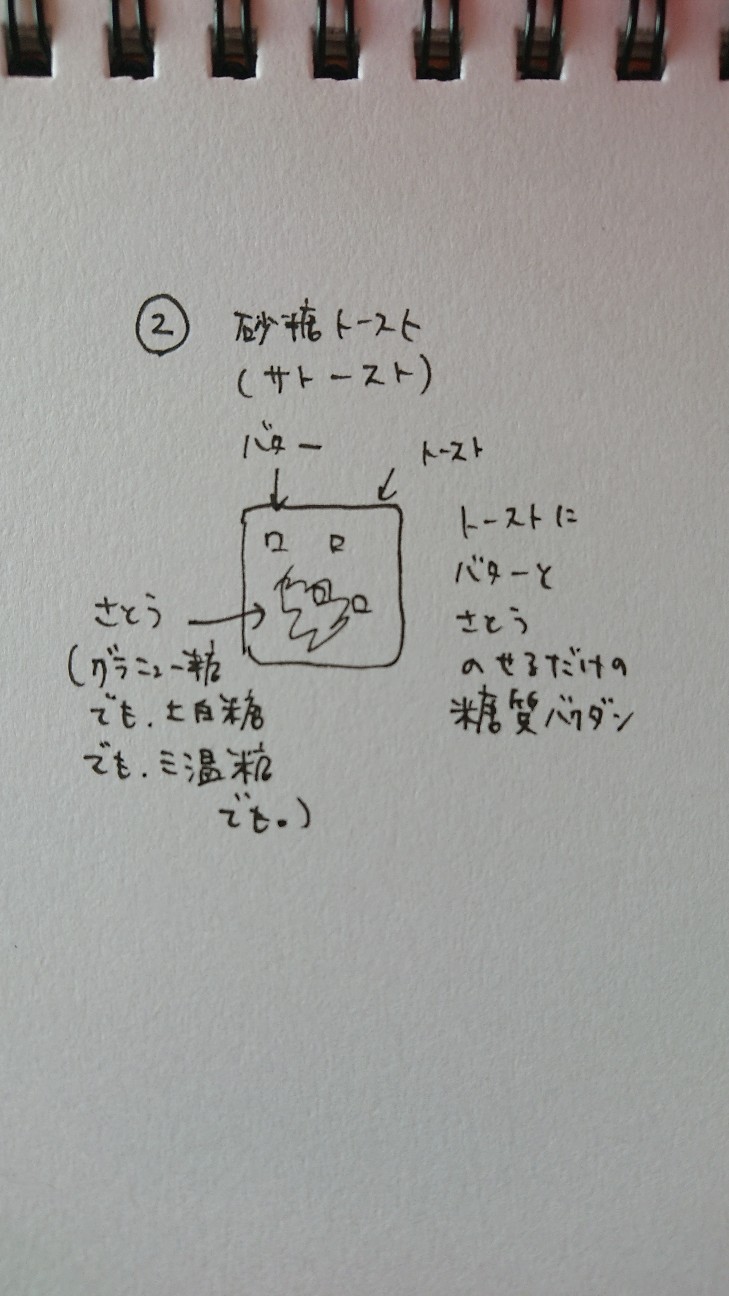 ② 砂糖トースト
(サトースト)
バター
トースト
さとう
(グラニュー糖
でも、上白糖
でも、三温糖
でも。)
トーストに
バターと
さとう
のせるだけの
糖質バクダン